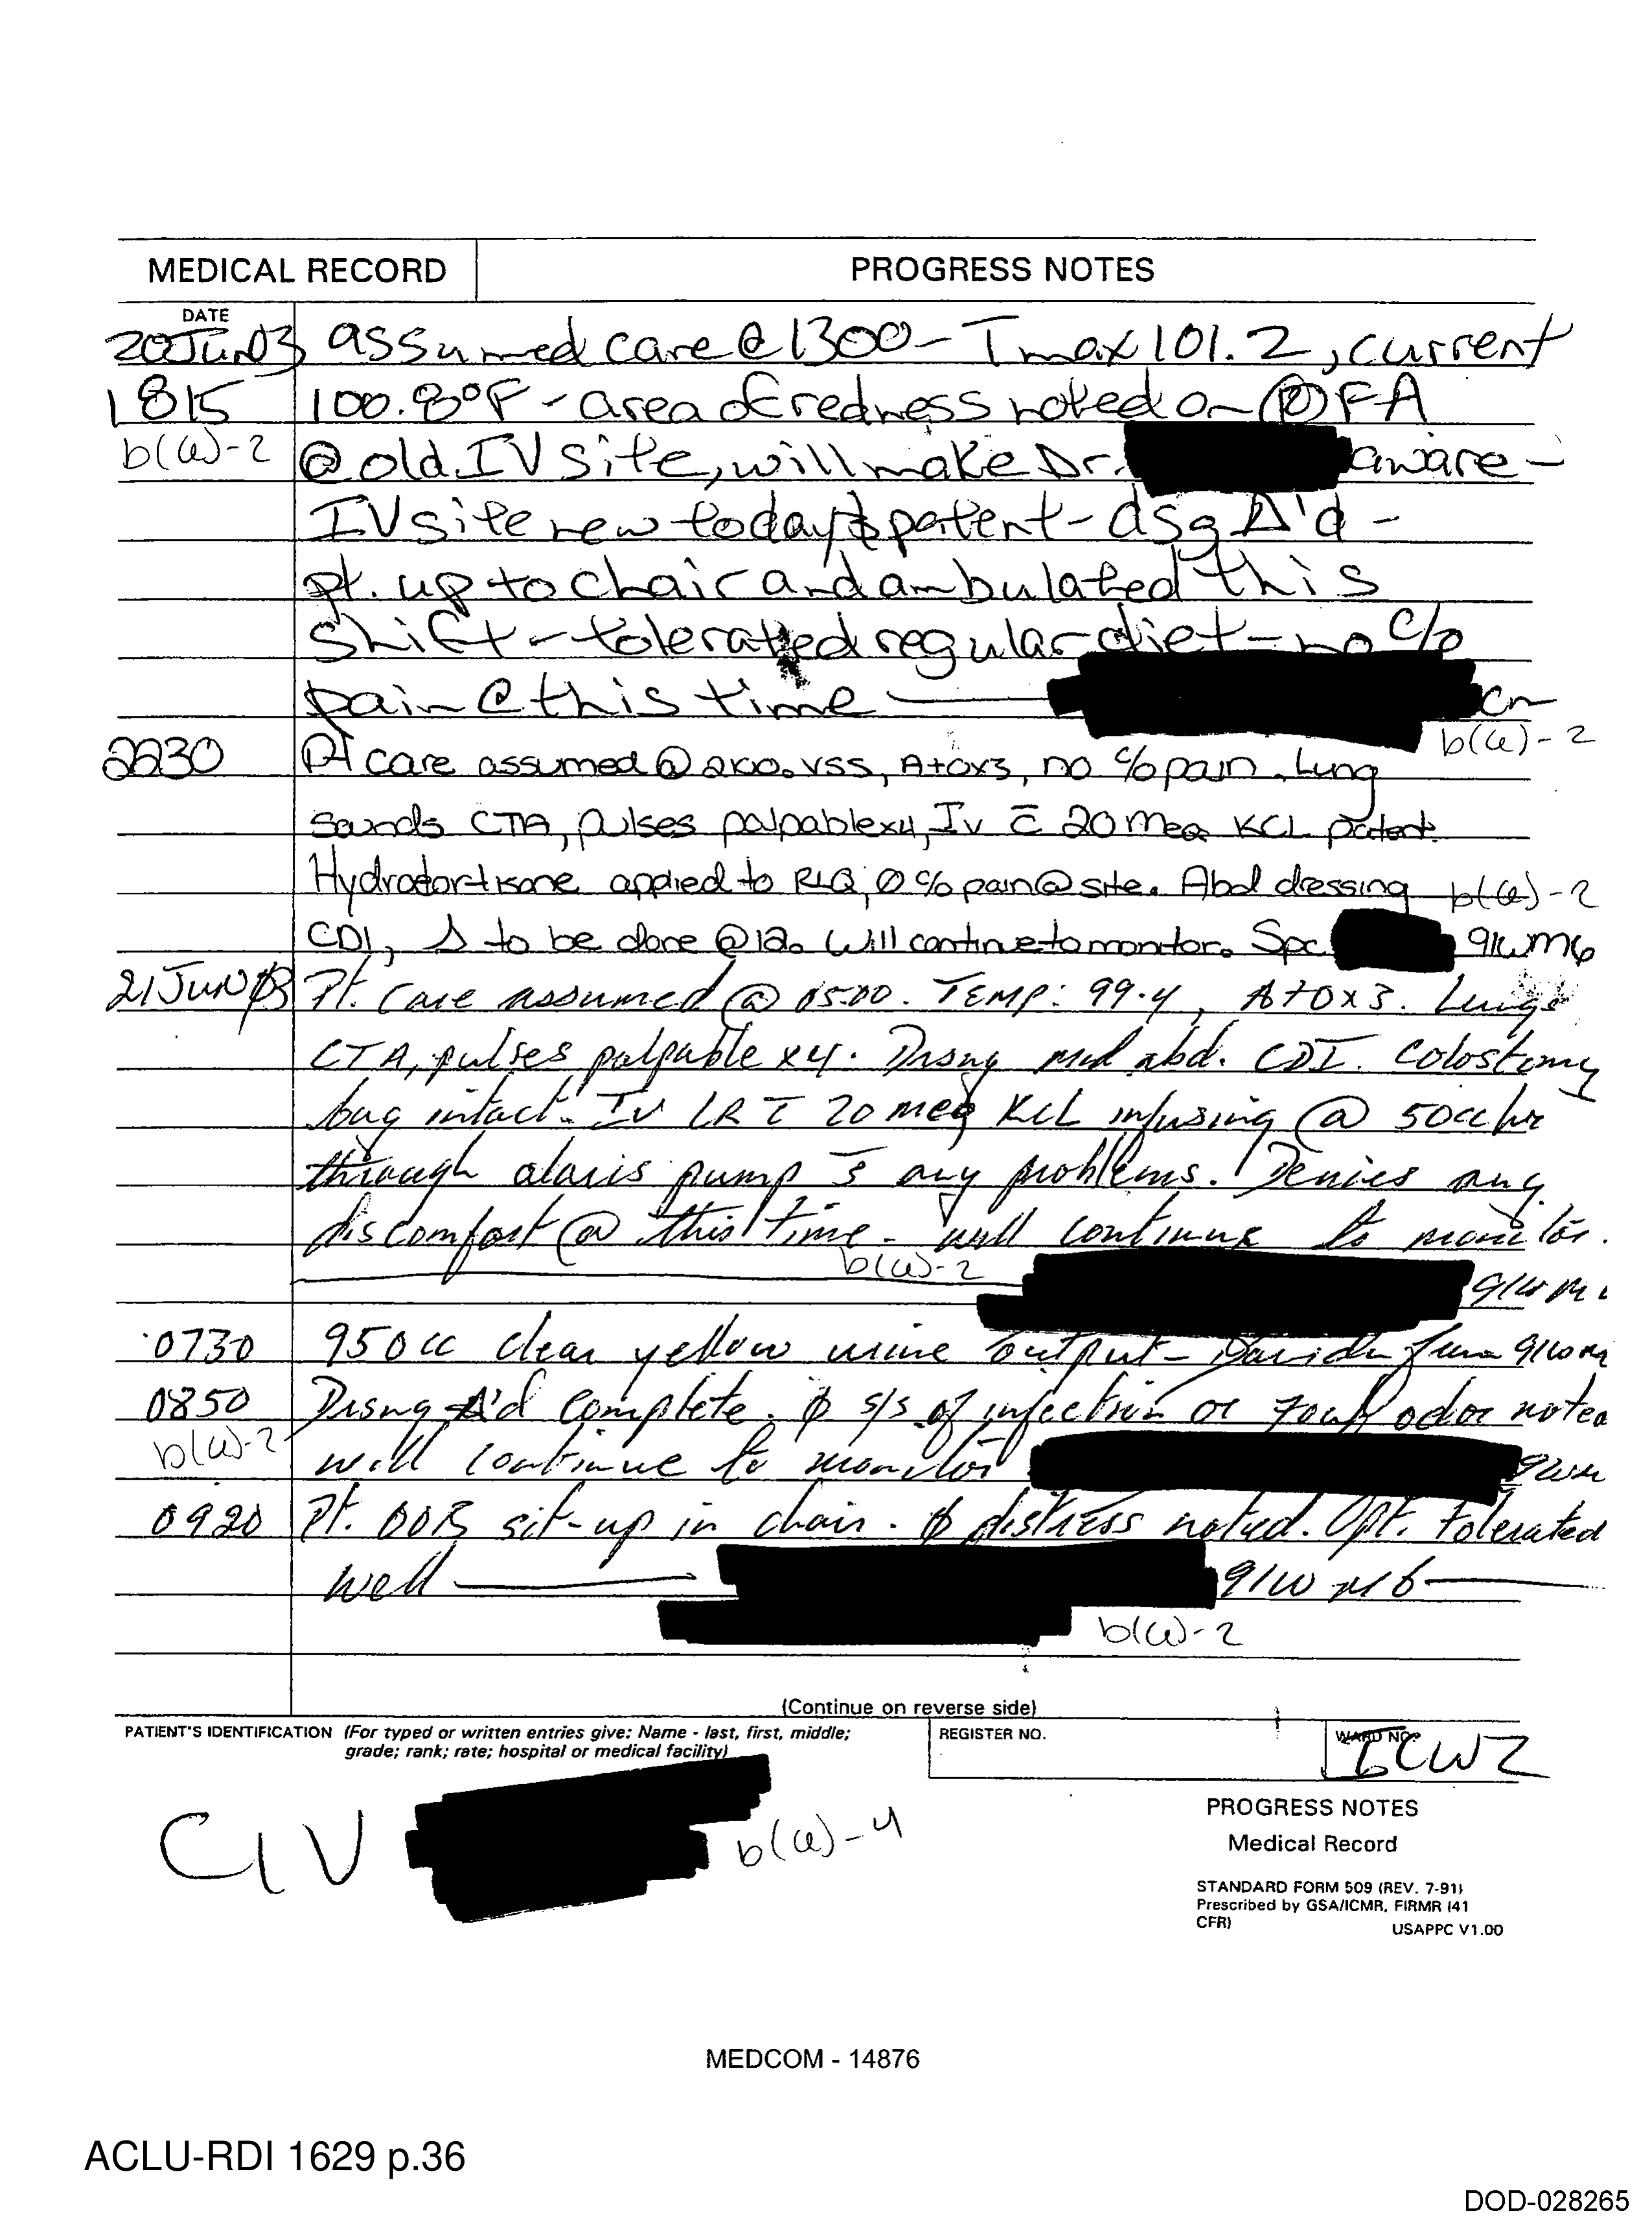 MEDICAL RECORD PROGRESS NOTES
DATE
20Jun03 assumed care @ 1300 - Tmax 101.2, current
1815 100.8°F - area of redness noted on Ⓡ FA
b(6)-2 @ old IV site, will make Dr. aware -
IV site new today & patent - dsg Δ'd -
pt. up to chair and ambulated this
shift - tolerated regular diet - no c/o
pain @ this time
b(6)-2
2230 Pt care assumed @ 2100. VSS, A+Ox3, no c/o pain. Lung
sounds CTA, pulses palpable x4, IV c̄ 20 meq KCL patent.
Hydrocortisone applied to RLQ, 0 c/o pain @ site. Abd dressing b(6)-2
CDI, Δ to be done @ 12. Will continue to monitor. Spc. 91WM6
21JUN03 Pt. Care assumed @ 0500. TEMP: 99.4, A+Ox3. Lungs
CTA, pulses palpable x4. Drsng mid abd. CDI. Colostomy
bag intact. IV LR c̄ 20 meq KCL infusing @ 50cc/hr
through alaris pump s̄ any problems. Denies any
discomfort @ this time - will continue to monitor.
b(6)-2 91WM
0730 950cc clear yellow urine output - 91WM
0850 Drsng Δ'd complete. ϕ s/s of infection or foul odor noted
b(6)-2 will continue to monitor 91WM
0920 Pt. OOB sit-up in chair. ϕ distress noted. Opt. tolerated
well 91WM6
b(6)-2
(Continue on reverse side)
PATIENT'S IDENTIFICATION (For typed or written entries give: Name - last, first, middle;
grade; rank; rate; hospital or medical facility)
REGISTER NO.
WARD NO.
ICW2
CIV b(6)-4
PROGRESS NOTES
Medical Record
STANDARD FORM 509 (REV. 7-91)
Prescribed by GSA/ICMR, FIRMR (41
CFR)
USAPPC V1.00
MEDCOM - 14876
ACLU-RDI 1629 p.36
DOD-028265